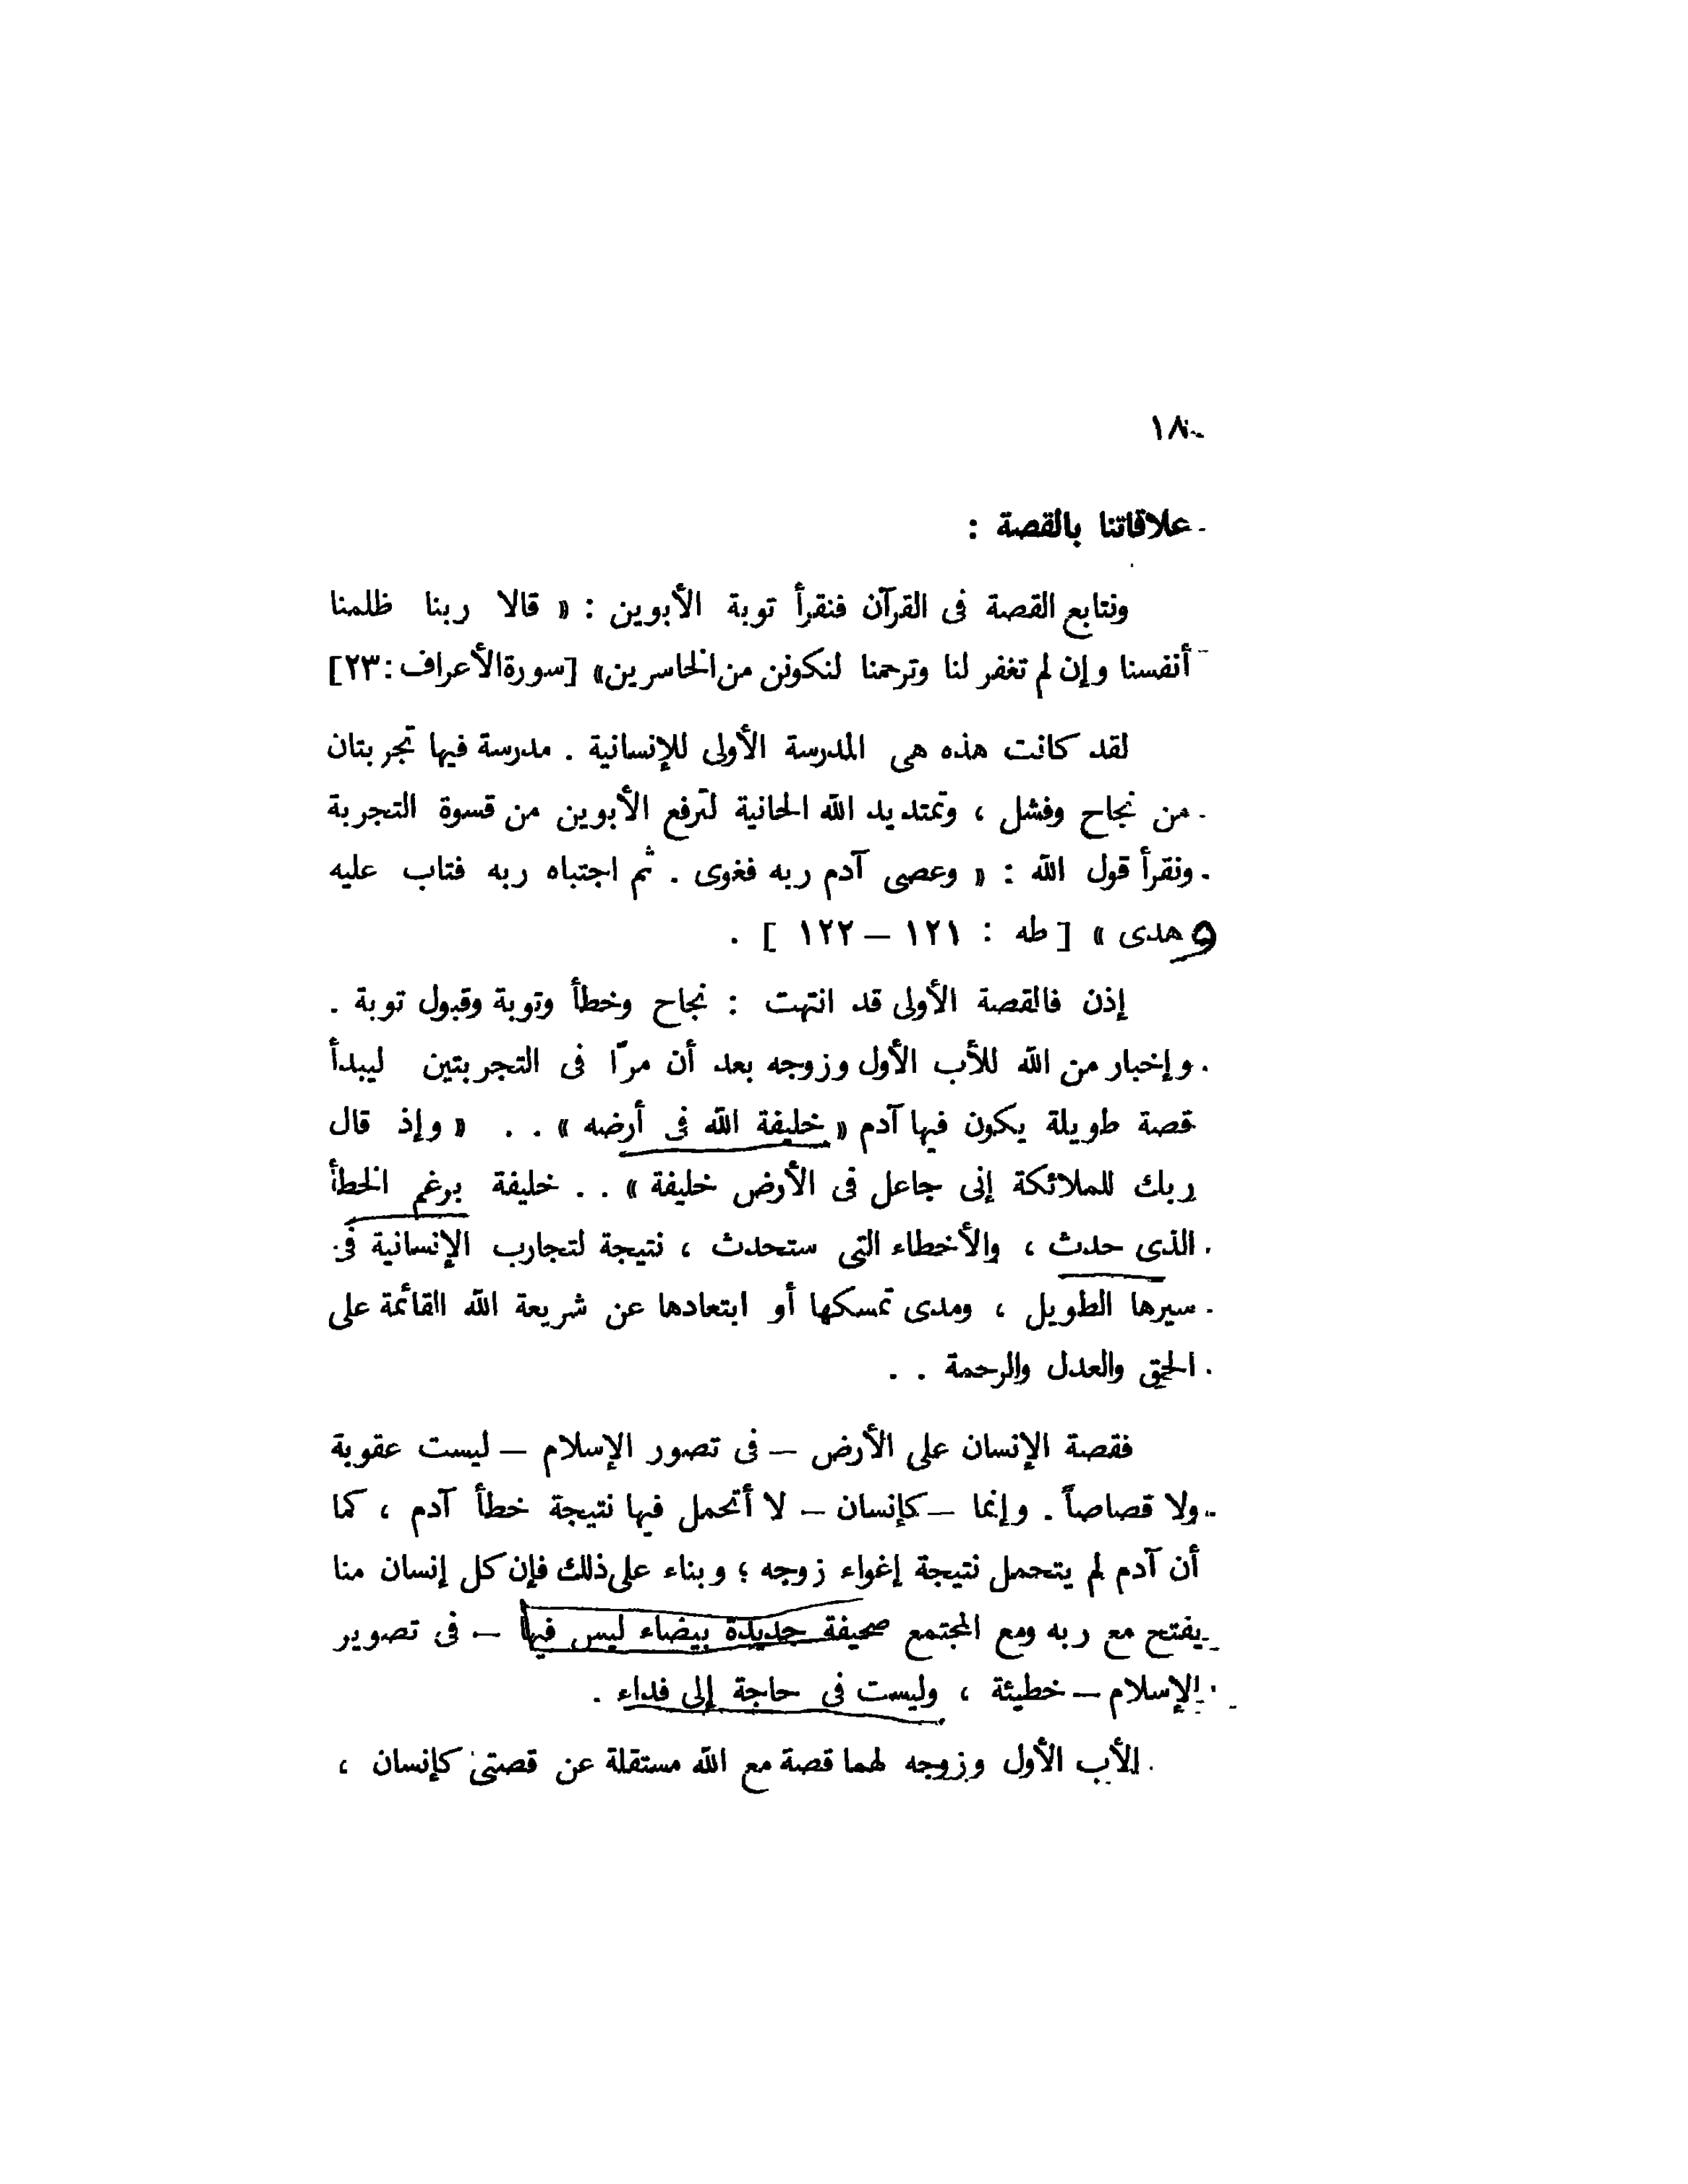 ١٨
علاقاتنا بالقصة :
ونتابع القصة فى القرآن فنقرأ توبة الأبوين : « قالا ربنا ظلمنا
أنفسنا وإن لم تغفر لنا وترحمنا لنكونن من الخاسرين» [سورة الأعراف : ٢٣]
لقد كانت هذه هى المدرسة الأولى للإنسانية . مدرسة فيها تجربتان
من نجاح وفشل ، وتمتد يد الله الحانية لترفع الأبوين من قسوة التجربة
ونقرأ قول الله : « وعصى آدم ربه فغوى . ثم اجتباه ربه فتاب عليه
وهدى » [ طه : ١٢١ – ١٢٢ ] .
إذن فالقصة الأولى قد انتهت : نجاح وخطأ وتوبة وقبول توبة .
وإخبار من الله للأب الأول وزوجه بعد أن مرّا فى التجربتين ليبدأ
قصة طويلة يكون فيها آدم « خليفة الله فى أرضه » . . « وإذ قال
ربك للملائكة إنى جاعل فى الأرض خليفة » . . خليفة برغم الخطأ
الذى حدث ، والأخطاء التى ستحدث ، نتيجة لتجارب الإنسانية فى
سيرها الطويل ، ومدى تمسكها أو ابتعادها عن شريعة الله القائمة على
الحق والعدل والرحمة . .
فقصة الإنسان على الأرض – فى تصور الإسلام – ليست عقوبة
ولا قصاصاً . وإنما – كإنسان – لا أتحمل فيها نتيجة خطأ آدم ، كما
أن آدم لم يتحمل نتيجة إغواء زوجه ؛ وبناء على ذلك فإن كل إنسان منا
يفتح مع ربه ومع المجتمع صحيفة جديدة بيضاء ليس فيها – فى تصوير
الإسلام – خطيئة ، وليست فى حاجة إلى فداء .
الأب الأول وزوجه لهما قصة مع الله مستقلة عن قصتى كإنسان ،